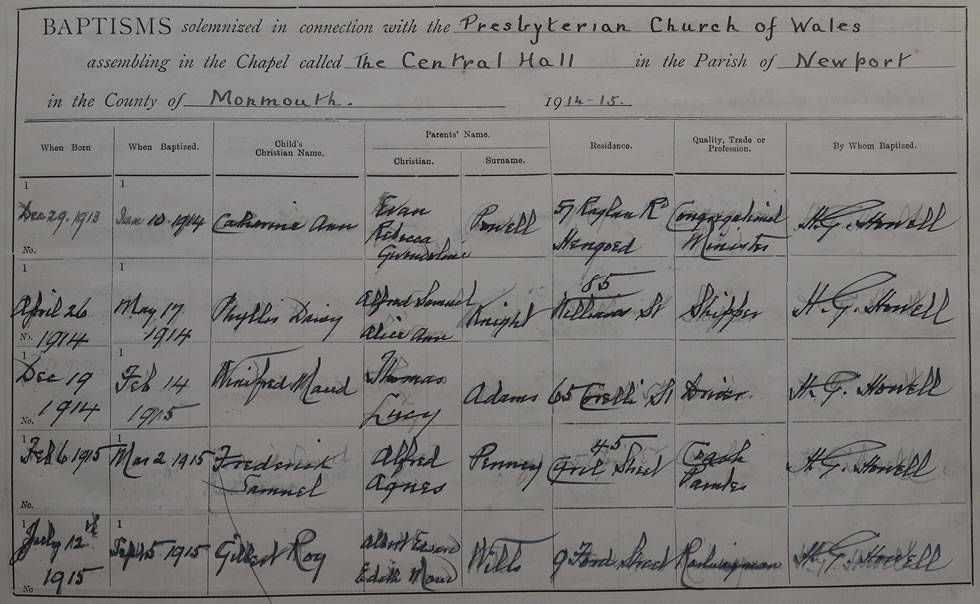 BAPTISMS solemnized in connection with the Presbyterian Church of Wales
assembling in the Chapel called The Central Hall in the Parish of Newport
in the County of Monmouth. 1914-15.
When Born When Baptized. Child's Christian Name. Parents' Name. Christian. Surname. Residence. Quality, Trade or Profession. By Whom Baptized.
1 1
Dec 29. 1913 Jan 10. 1914 Catherine Ann Evan Rebecca Gwendoline Powell 57 Raglan Rd Hengoed Congregational Minister H. G. Howell
No.
1 1
April 26 1914 May 17 1914 Phyllis Daisy Alfred Samuel Alice Ann Knight 85 William St Shipper H. G. Howell
No.
1 1
Dec 19 1914 Feb 14 1915 Winifred Maud Thomas Lucy Adams 65 Corelli St Driver H. G. Howell
No.
1 1
Feb 6 1915 Mar 2 1915 Frederick Samuel Alfred Agnes Penney 45 Street Painter H. G. Howell
No.
1 1
July 12th 1915 Sept 5 1915 Gilbert Roy Albert Edith Maud Wills 9 Ford Street Railwayman H. G. Howell
No